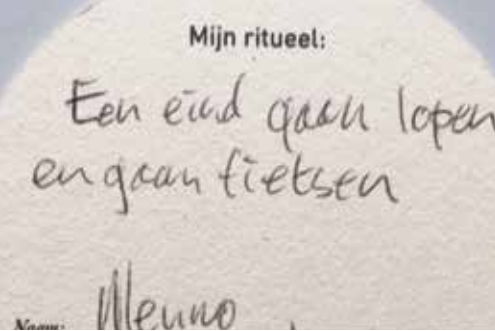 Mijn ritueel:
Een eind gaan lopen
en gaan fietsen
Naam: Menno